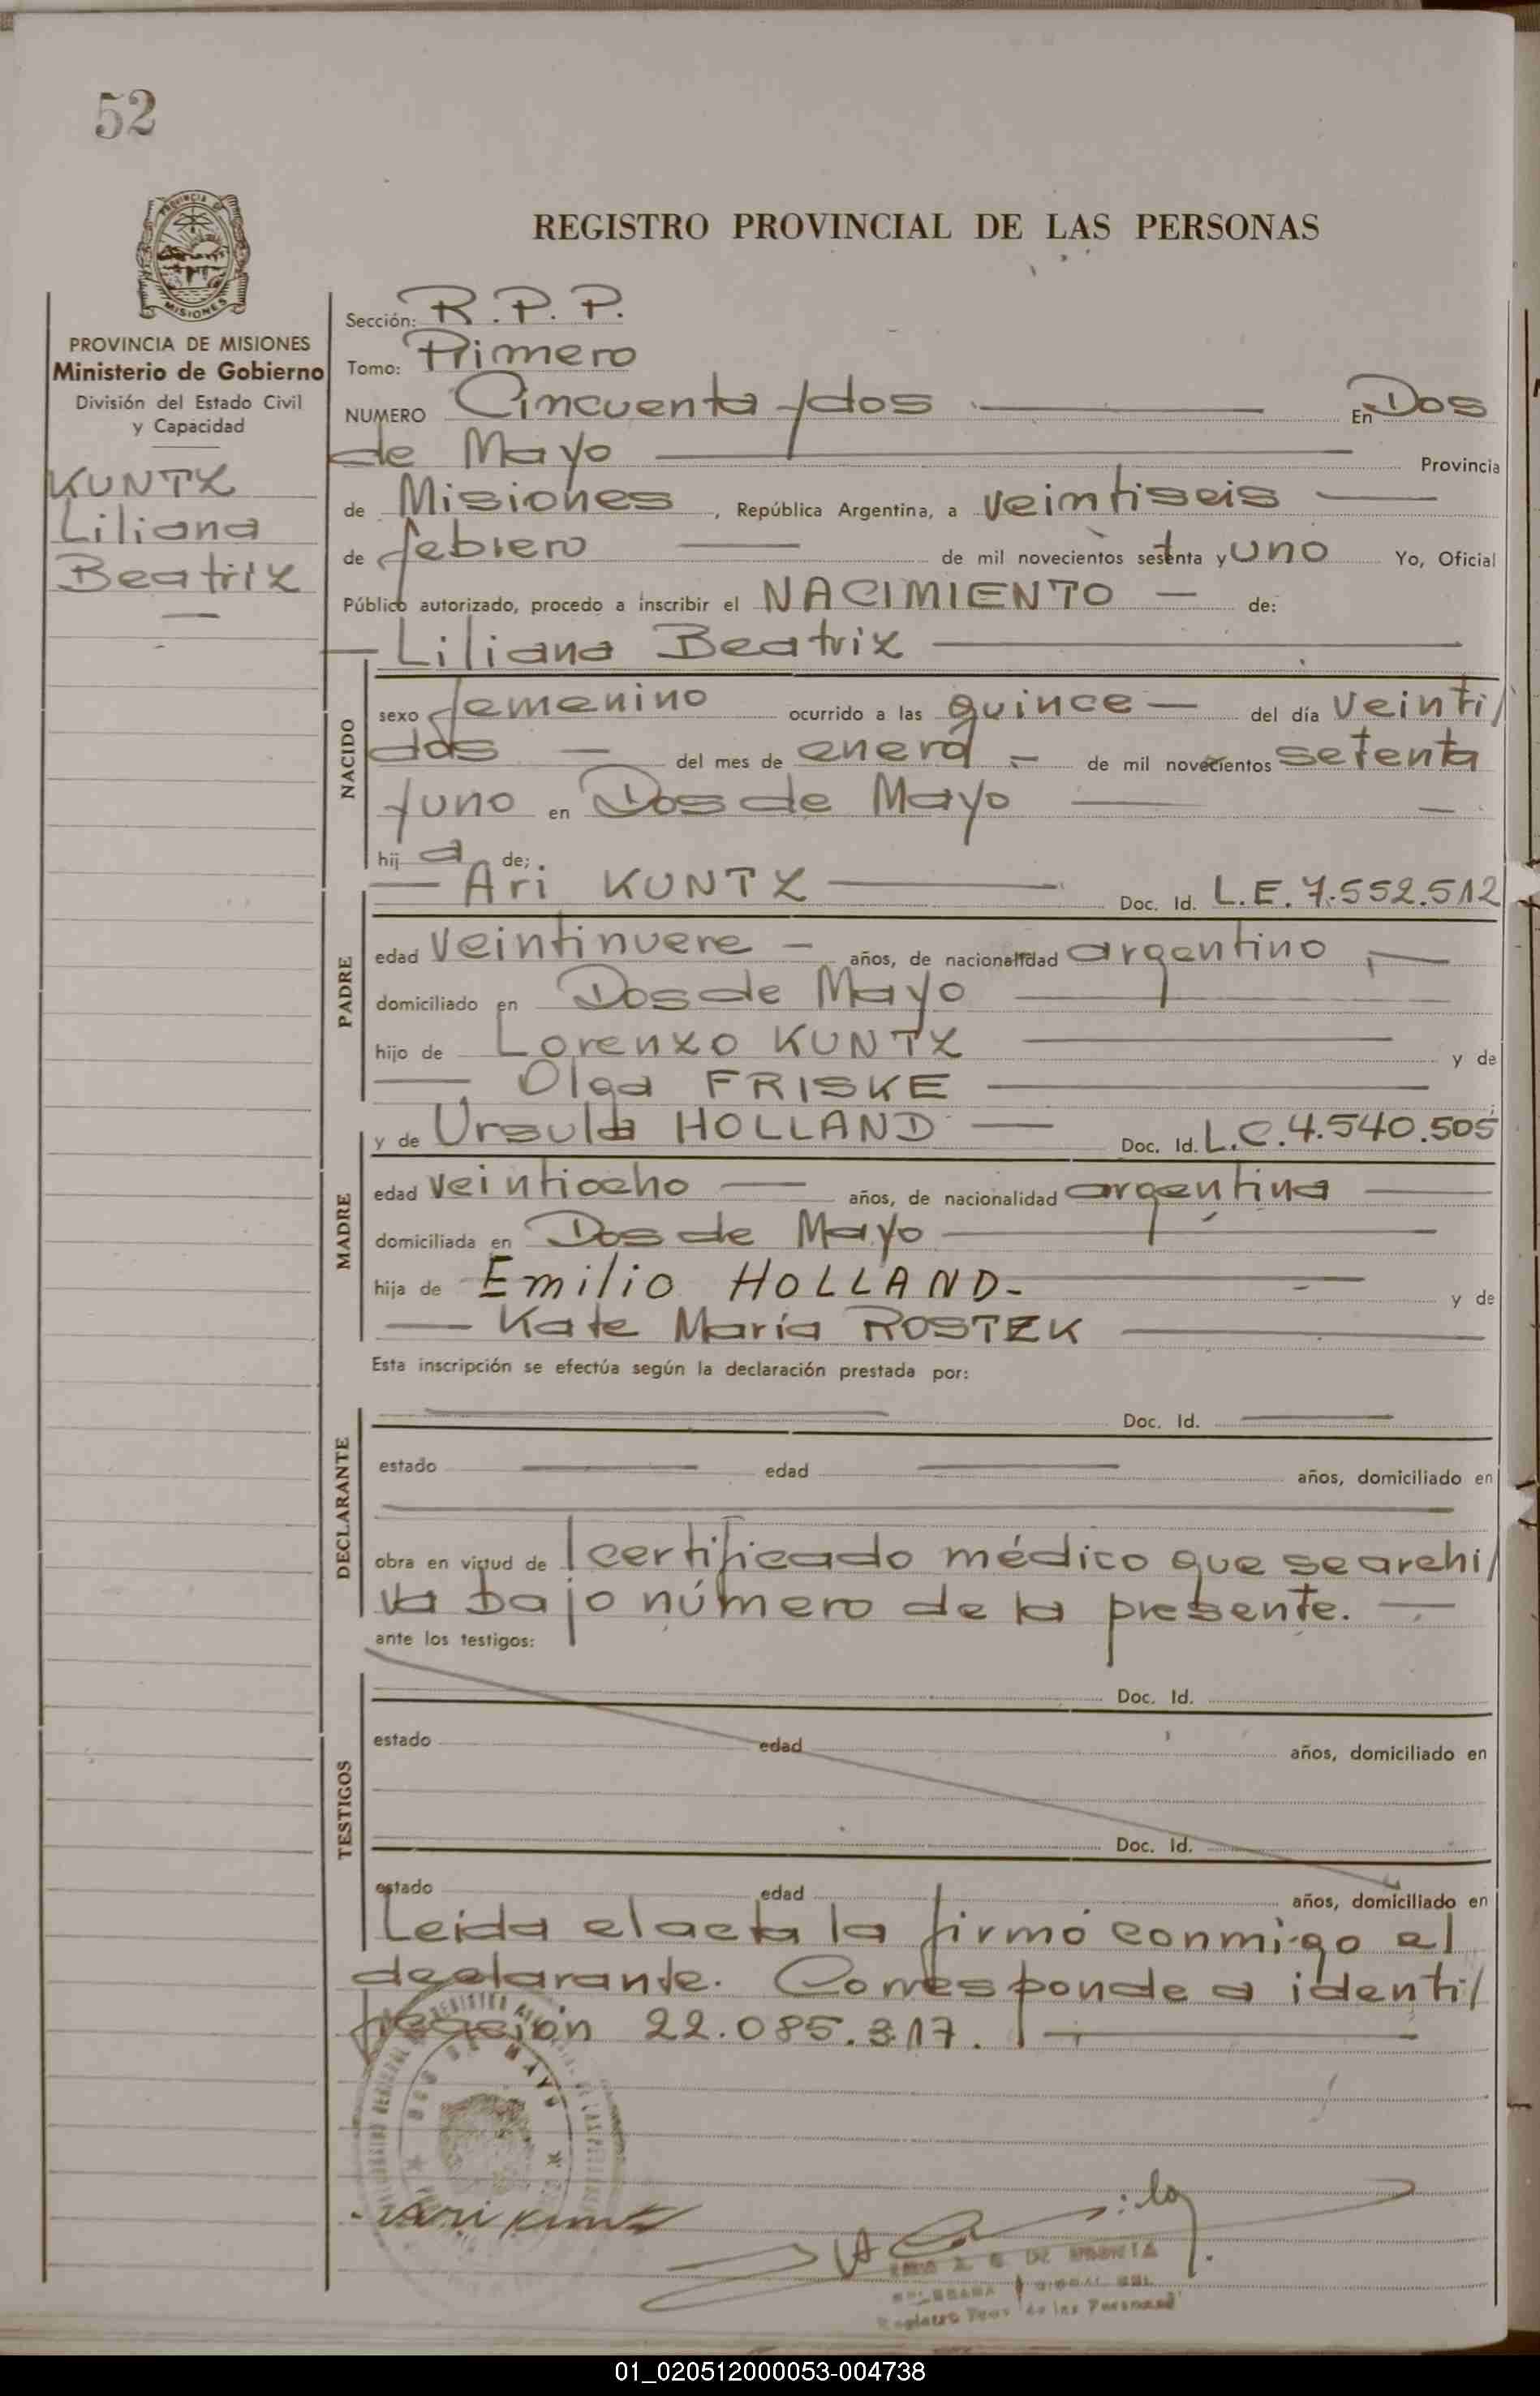 52
PROVINCIA DE
MISIONES
REGISTRO PROVINCIAL DE LAS PERSONAS
PROVINCIA DE MISIONES
Ministerio de Gobierno
División del Estado Civil
y Capacidad
KUNTZ
Liliana
Beatriz
Sección: R.P.P.
Tomo: Primero
NUMERO Cincuenta y dos En Dos
de Mayo Provincia
de Misiones, República Argentina, a veintiseis
de febrero de mil novecientos setenta y uno Yo, Oficial
Público autorizado, procedo a inscribir el NACIMIENTO de:
Liliana Beatriz
NACIDO
sexo femenino ocurrido a las quince del día veinti/
dos del mes de enero de mil novecientos setenta
y uno en Dos de Mayo
hij a de;
Ari KUNTZ Doc. Id. L.E. 7.552.512
PADRE
edad veintinueve años, de nacionalidad argentino
domiciliado en Dos de Mayo
hijo de Lorenzo KUNTZ y de
Olga FRISKE
y de Ursula HOLLAND Doc. Id. L.C. 4.540.505
MADRE
edad veintiocho años, de nacionalidad argentina
domiciliada en Dos de Mayo
hija de Emilio HOLLAND- y de
Kate María ROSTEK
Esta inscripción se efectúa según la declaración prestada por:
DECLARANTE
Doc. Id.
estado edad años, domiciliado en
obra en virtud de l certificado médico que se archi/
va bajo número de la presente.
ante los testigos:
TESTIGOS
Doc. Id.
estado edad años, domiciliado en
Doc. Id.
estado edad años, domiciliado en
Leida el acta la firmó conmigo el
declarante. Corresponde a identi/
ficación 22.085.317.
DOS DE MAYO
Ari Kuntz
Registro de las Personas
01_020512000053-004738